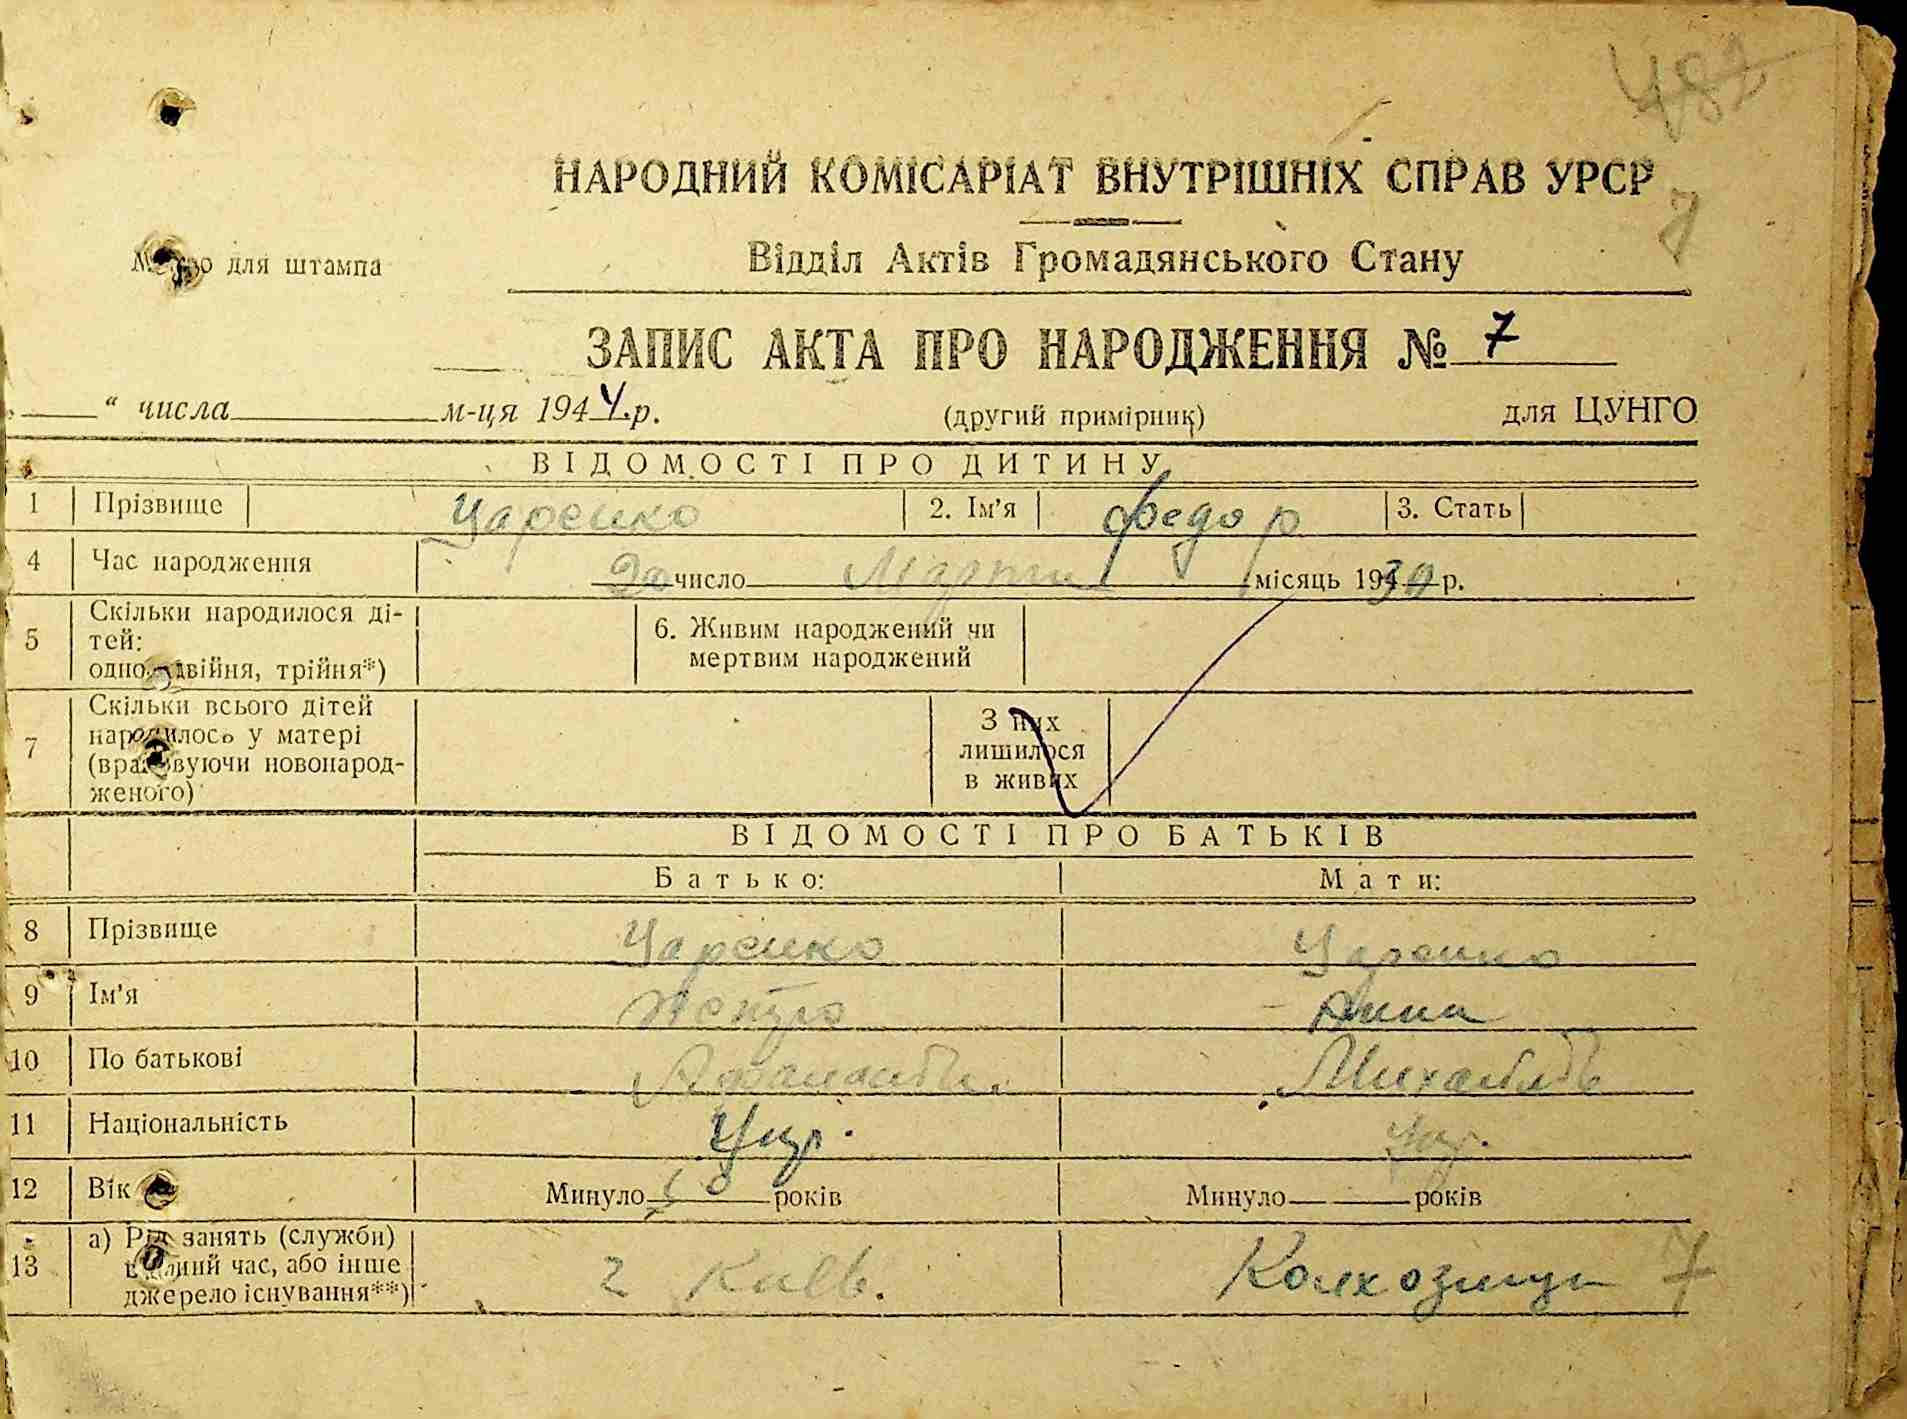 482
НАРОДНИЙ КОМІСАРІАТ ВНУТРІШНІХ СПРАВ УРСР
7
Місцо для штампа
Відділ Актів Громадянського Стану
ЗАПИС АКТА ПРО НАРОДЖЕННЯ № 7
“ числа м-ця 1944 р. (другий примірник) для ЦУНГО
ВІДОМОСТІ ПРО ДИТИНУ
1 Прізвище Царенко 2. Ім’я Федор 3. Стать
4 Час народження 20 число Марта місяць 1930 р.
5 Скільки народилося ді-
тей:
одно, двійня, трійня*)
6. Живим народжений чи
мертвим народжений
7 Скільки всього дітей
народилось у матері
(враховуючи новонарод-
женого)
З них
лишилося
в живих
ВІДОМОСТІ ПРО БАТЬКІВ
Батько: Мати:
8 Прізвище Царенко Царенко
9 Ім’я Петро Анна
10 По батькові
11 Національність Укр. Укр.
12 Вік Минуло років Минуло років
13 а) Рід занять (служби)
в даний час, або інше
джерело існування**)
г Київ. Колхозница 7